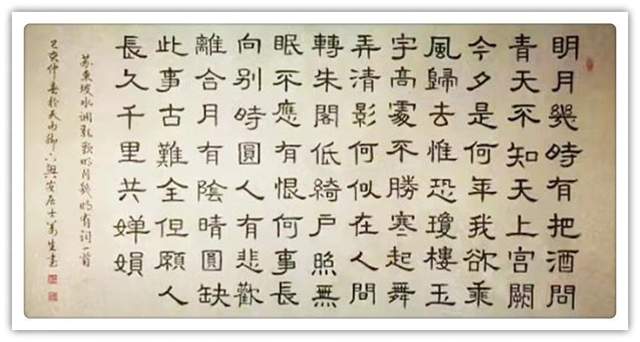 明月幾時有把酒問
青天不知天上宮闕
今夕是何年我欲乘
風歸去惟恐瓊樓玉
宇高處不勝寒起舞
弄清影何似在人間
轉朱閣低綺戶照無
眠不應有恨何事長
向別時圓人有悲歡
離合月有陰晴圓缺
此事古難全但願人
長久千里共嬋娟
蘇東坡水調歌歌明月幾時有詞一首
己亥仲春於天府御興安居士書